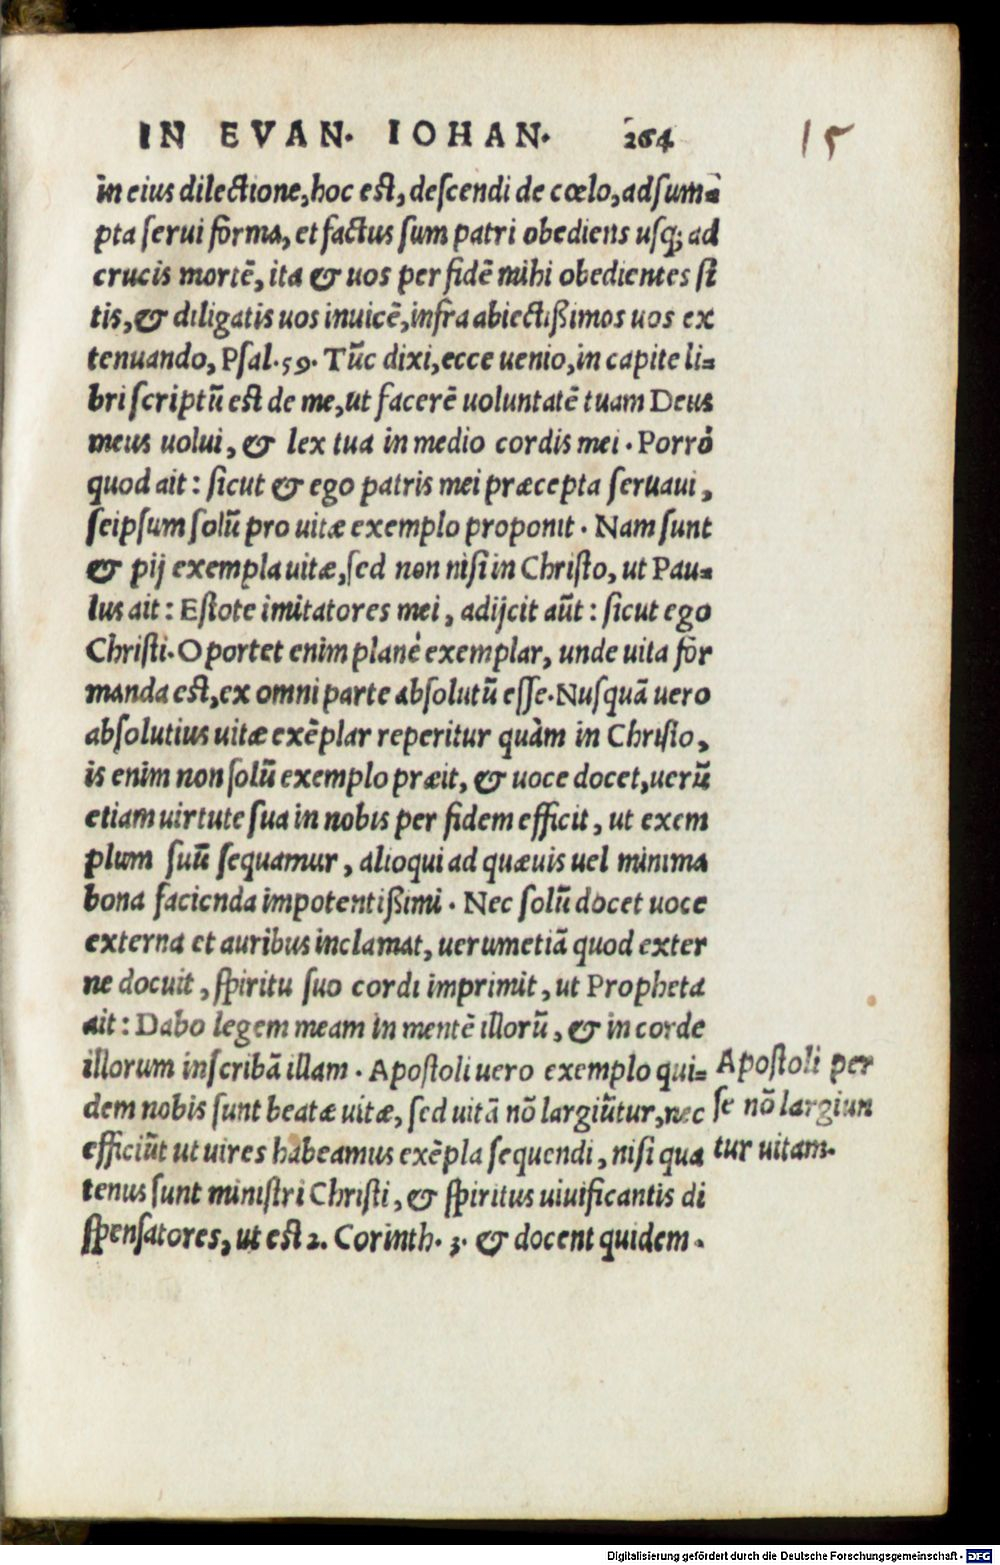 IN EVAN. IOHAN. 264
15
in eius dilectione, hoc est, descendi de cœlo, adsum=
pta serui forma, et factus sum patri obediens usq; ad
crucis mortē, ita & uos per fidē mihi obedientes si
tis, & diligatis uos inuicē, infra abiectißimos uos ex
tenuando, Psal. 59. Tūc dixi, ecce uenio, in capite li=
bri scriptū est de me, ut facerē uoluntatē tuam Deus
meus uolui, & lex tua in medio cordis mei. Porrò
quod ait: sicut & ego patris mei præcepta seruaui,
seipsum solū pro uitæ exemplo proponit. Nam sunt
& pij exempla uitæ, sed non nisi in Christo, ut Pau=
lus ait: Estote imitatores mei, adijcit aūt: sicut ego
Christi. Oportet enim planè exemplar, unde uita for
manda est, ex omni parte absolutū esse. Nusquā uero
absolutius uitæ exēplar reperitur quàm in Christo,
is enim non solū exemplo præit, & uoce docet, uerū
etiam uirtute sua in nobis per fidem efficit, ut exem
plum suū sequamur, alioqui ad quæuis uel minima
bona facienda impotentißimi. Nec solū docet uoce
externa et auribus inclamat, uerumetiā quod exter
ne docuit, spiritu suo cordi imprimit, ut Propheta
ait: Dabo legem meam in mentē illorū, & in corde
illorum inscribā illam. Apostoli uero exemplo qui=
dem nobis sunt beatæ uitæ, sed uitā nō largiūtur, nec
efficiūt ut uires habeamus exēpla sequendi, nisi qua
tenus sunt ministri Christi, & spiritus uiuificantis di
spensatores, ut est 2. Corinth. 3. & docent quidem.
Apostoli per
se nō largiun
tur uitam.
Digitalisierung gefördert durch die Deutsche Forschungsgemeinschaft - DFG